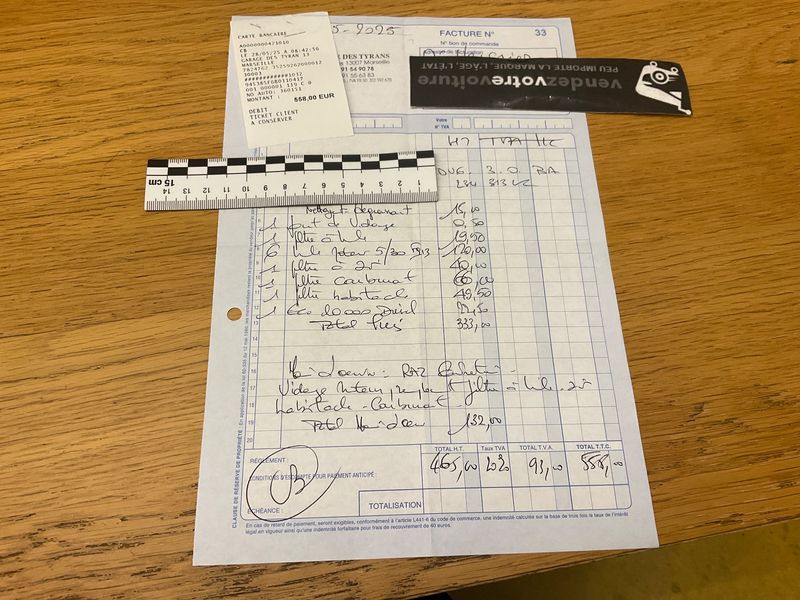 CARTE BANCAIRE
A0000000421010
CB
LE 28/05/25 A 08:42:56
GARAGE DES TYRAN 13
MARSEILLE
30003
############1032
001 000001 119 C @
NO AUTO: 360151
MONTANT : 558,00 EUR
DEBIT
TICKET CLIENT
A CONSERVER
5-2025
DES TYRANS
13007 Marseille
91 54 90 78
91 55 63 83
FACTURE N° 33
N° bon de commande
vendezvotrevoiture
PEU IMPORTE LA MARQUE, L'AGE, L'ÉTAT
Votre
N° TVA
HT TVA TTC
15 cm 14 13 12 11 10 9 8 7 6 5 4 3 2 1
3.0
234 313
Nettoyant degraissant 15,00
1 joint de Vidange 0,50
1 filtre à hle 19,50
6 hle moteur 5/30 120,00
1 filtre à air 40,00
1 filtre carburant 60,00
1 filtre habitacle 49,50
1 Eco 10000 Diesel
Total Pièces 333,00
Main d'oeuvre : RAZ Entretien -
Vidange Moteur, remplact filtre à hle - air
habitacle - Carburant -
Total Main d'oeuv 132,00
CLAUSE DE RÉSERVE DE PROPRIÉTÉ : En application de la loi 80.335 du 12 mai 1980, les marchandises restent la propriété du vendeur
RÈGLEMENT :
CB
CONDITIONS D'ESCOMPTE POUR PAIEMENT ANTICIPÉ :
ÉCHÉANCE :
TOTAL H.T. Taux TVA TOTAL T.V.A. TOTAL T.T.C.
465,00 20% 93,00 558,00
TOTALISATION
En cas de retard de paiement, seront exigibles, conformément à l'article L441-6 du code de commerce, une indemnité calculée sur la base de trois fois le taux de l'intérêt
légal en vigueur ainsi qu'une indemnité forfaitaire pour frais de recouvrement de 40 euros.